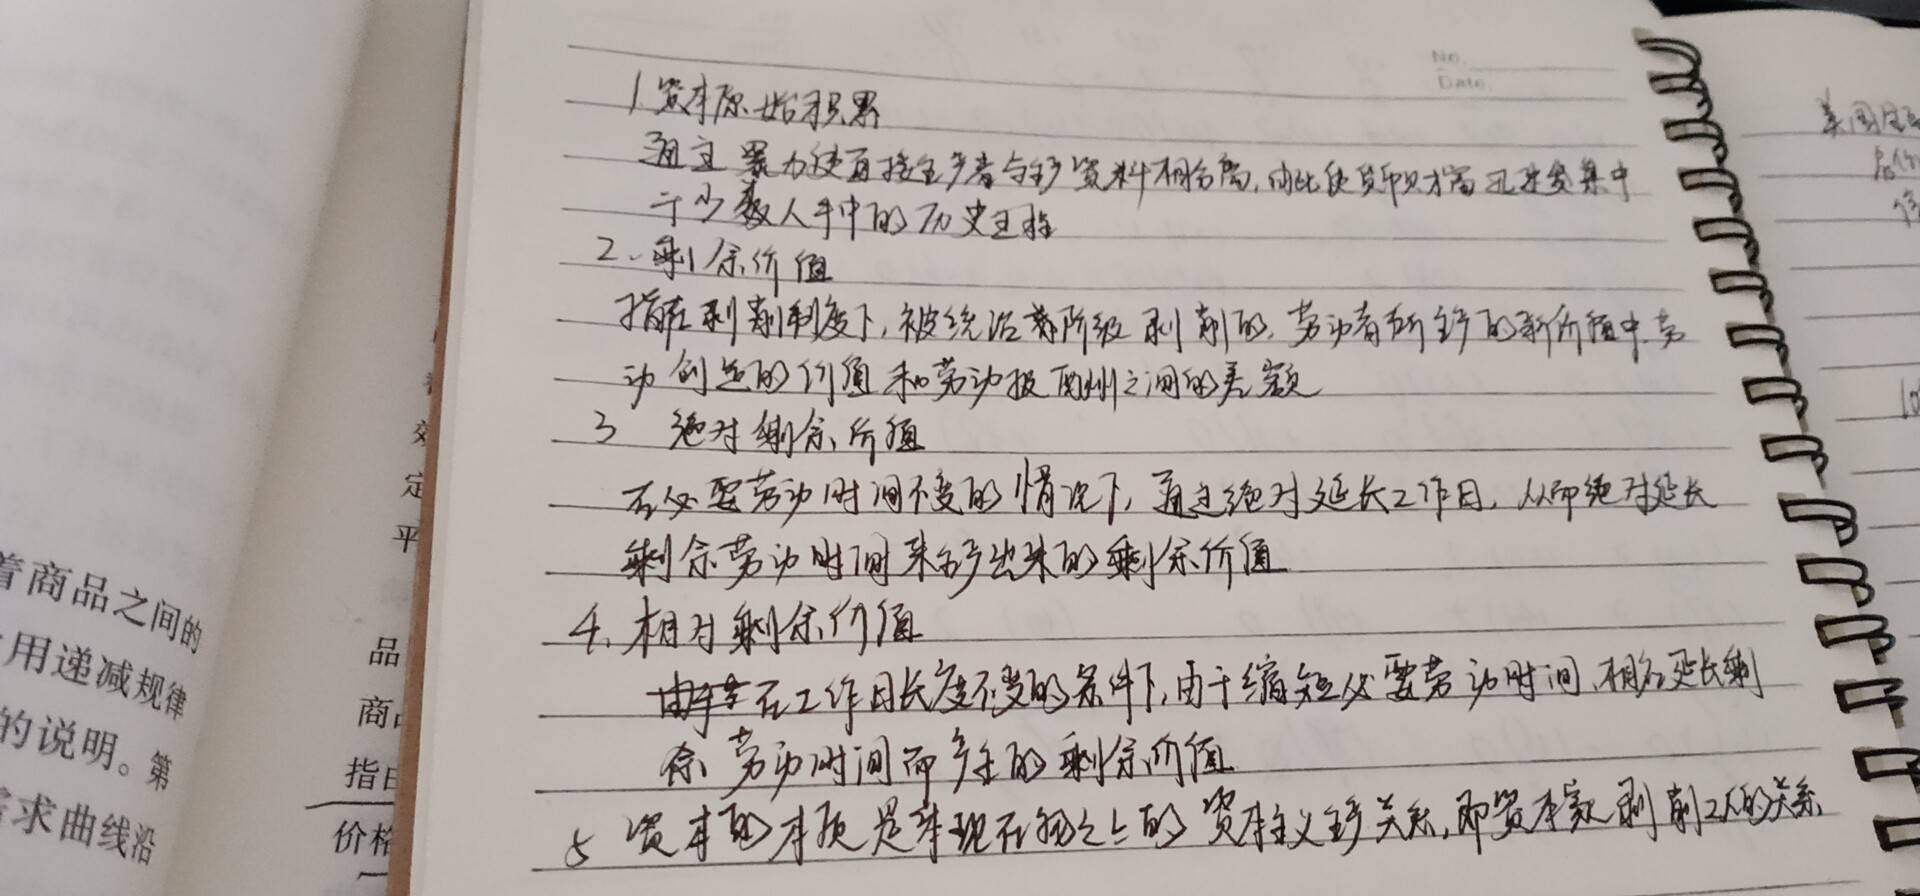 着商品之间的
用递减规律
的说明。第
求曲线沿
效
定
平
品
商品
指
价格
No.
Date.
1.资本原始积累
通过暴力使直接生产者与生产资料相分离,由此使货币财富迅速集中
于少数人手中的历史过程
2、剩余价值
指在剥削制度下,被统治阶级剥削的,劳动者所生产的新价值中,劳
动创造的价值和劳动报酬之间的差额
3 绝对剩余价值
在必要劳动时间不变的情况下,通过绝对延长工作日,从而绝对延长
剩余劳动时间来生产出来的剩余价值
4.相对剩余价值
在工作日长度不变的条件下,由于缩短必要劳动时间,相应延长剩
余劳动时间而产生的剩余价值
5 资本的本质是体现在物之上的资本主义生产关系,即资本家剥削工人的关系
美国